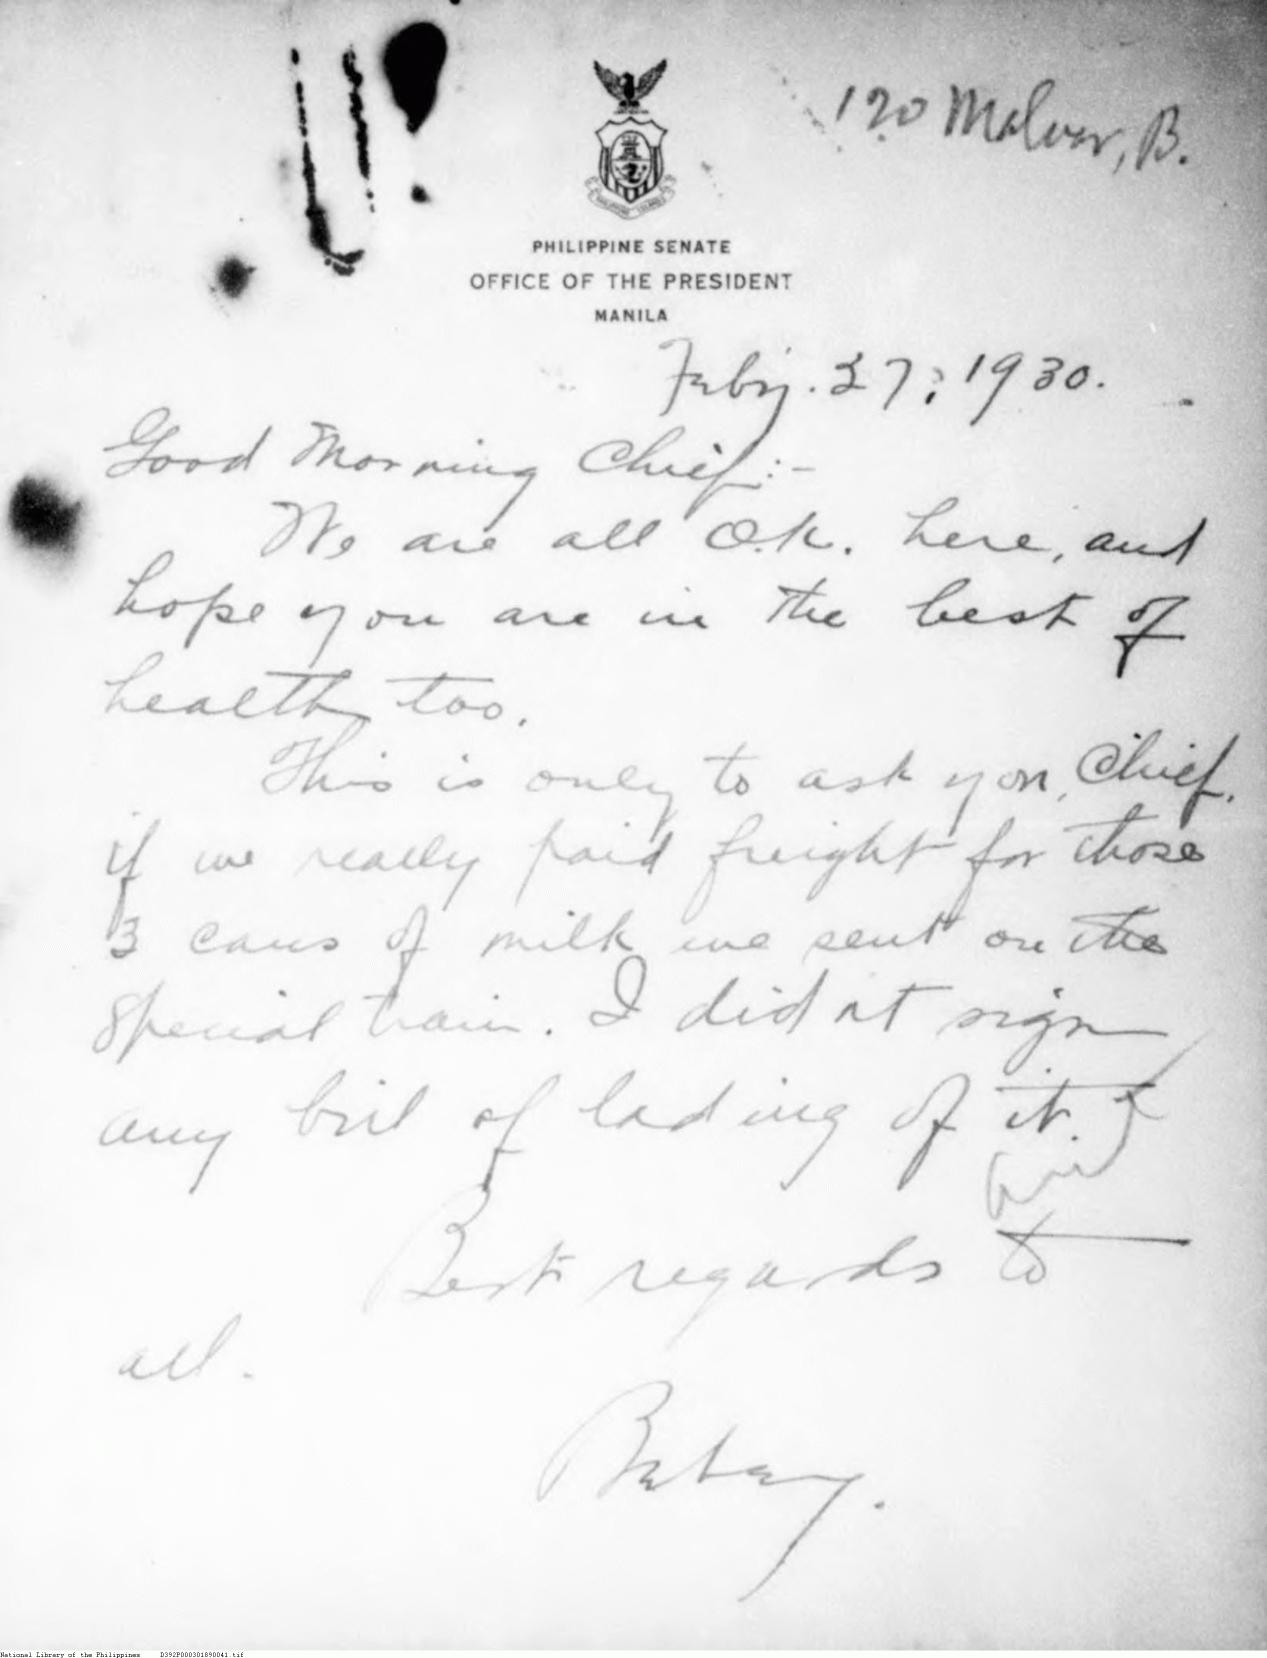 120 Malvar, B.
PHILIPPINE SENATE
OFFICE OF THE PRESIDENT
MANILA
27, 1930.
Good Morning Chief:-
We are all O.K. here, and
hope you are in the best of
health too.
This is only to ask you, Chief,
if we really paid freight for those
3 cans of milk we sent on the
special train. I didn't sign
any bill of lading of it.
Best regards to
all.